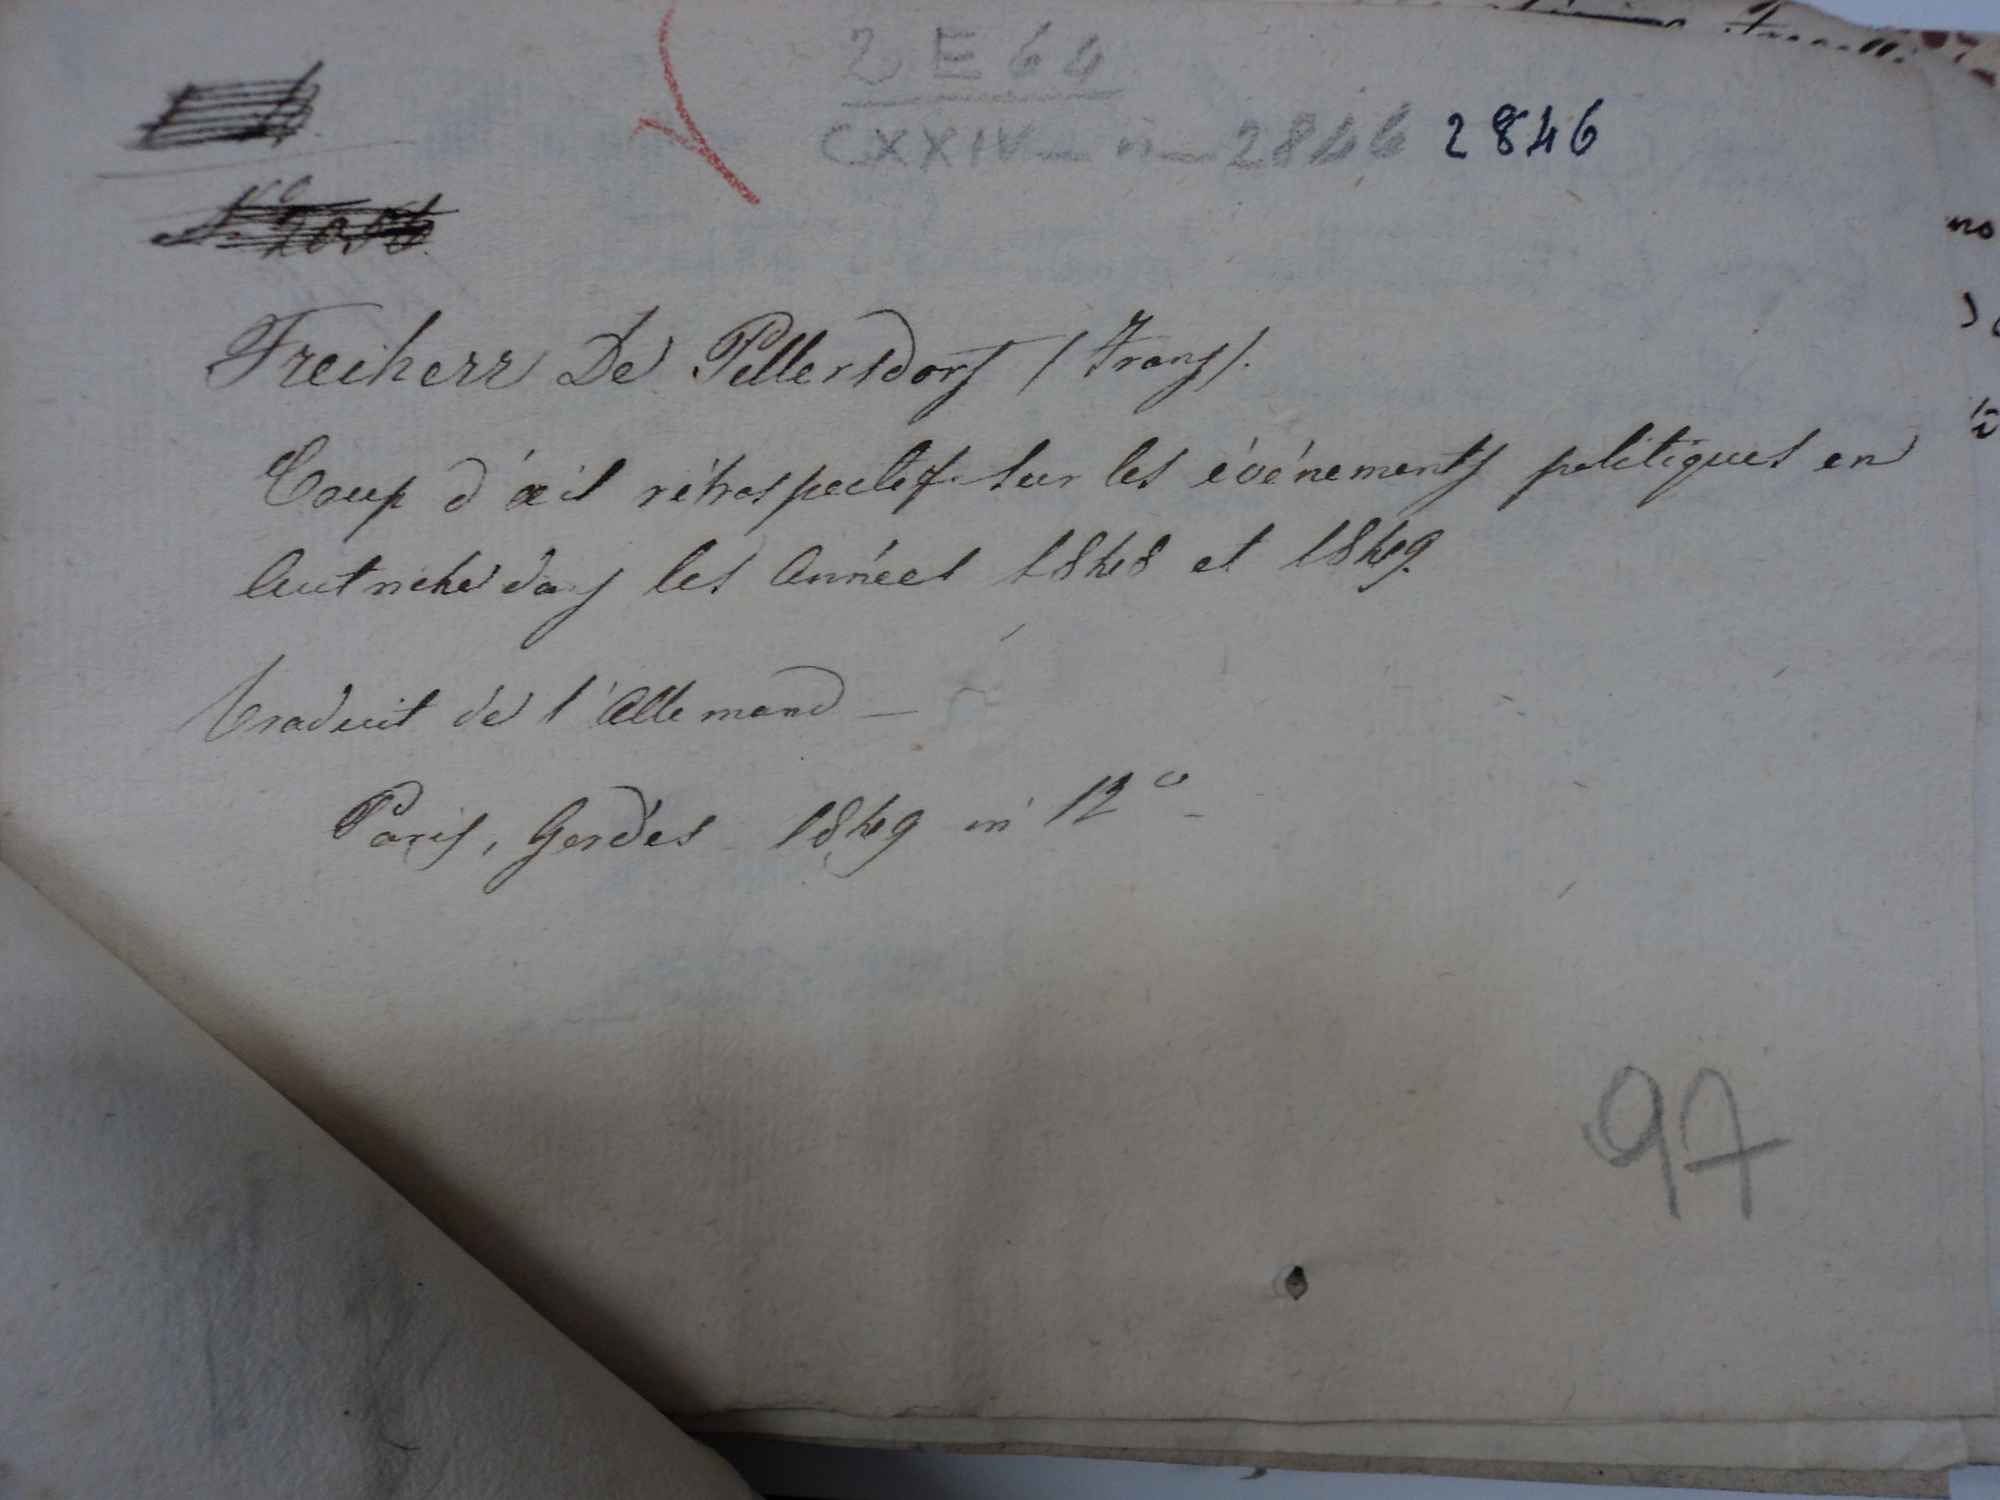 2 E 64
CXXIV — n — 2846 2846
Freiherr De Pillersdorf (Franz).
Coup d'œil rétrospectif sur les événements politiques en
Autriche dans les Années 1848 et 1849.
Traduit de l'Allemand —
Paris, Gerdès 1849 in 12°
97